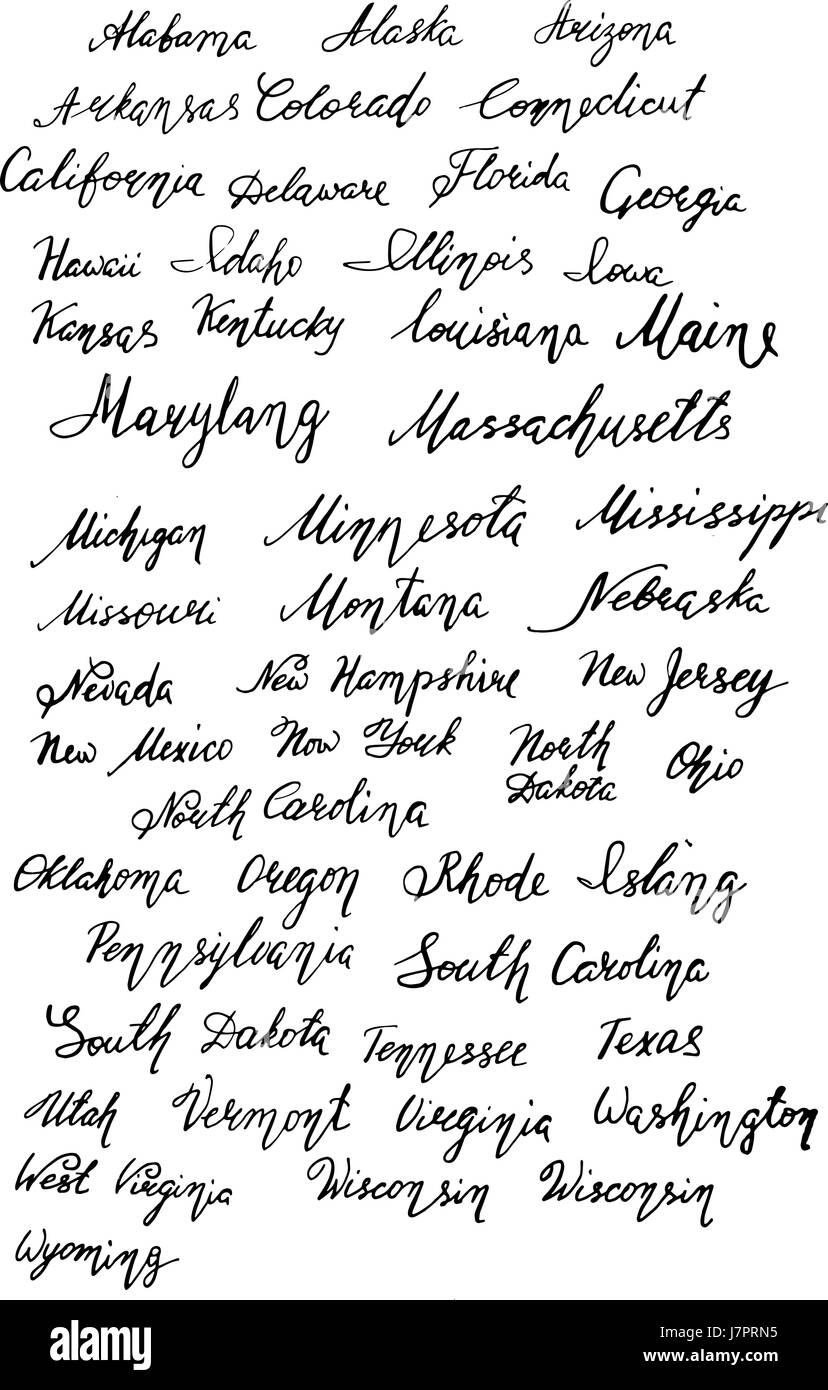 Alabama Alaska Arizona
Arkansas Colorado Connedicut
California Delaware Florida Georgia
Hawaii Idaho Illinois Iowa
Kansas Kentucky louisiana Maine
Marylang Massachusetts
Michigan Minnesota Mississippi
Missouri Montana Nebraska
Nevada New Hampshire New Jersey
New Mexico Now York North Dakota Ohio
North Carolina
Oklahoma Oregon Rhode Islang
Pennsylvania South Carolina
South Dakota Tennessee Texas
Utah Vermont Virginia Washington
West Virginia Wisconsin Wisconsin
Wyoming
alamy
Image ID: J7PRN5
www.alamy.com